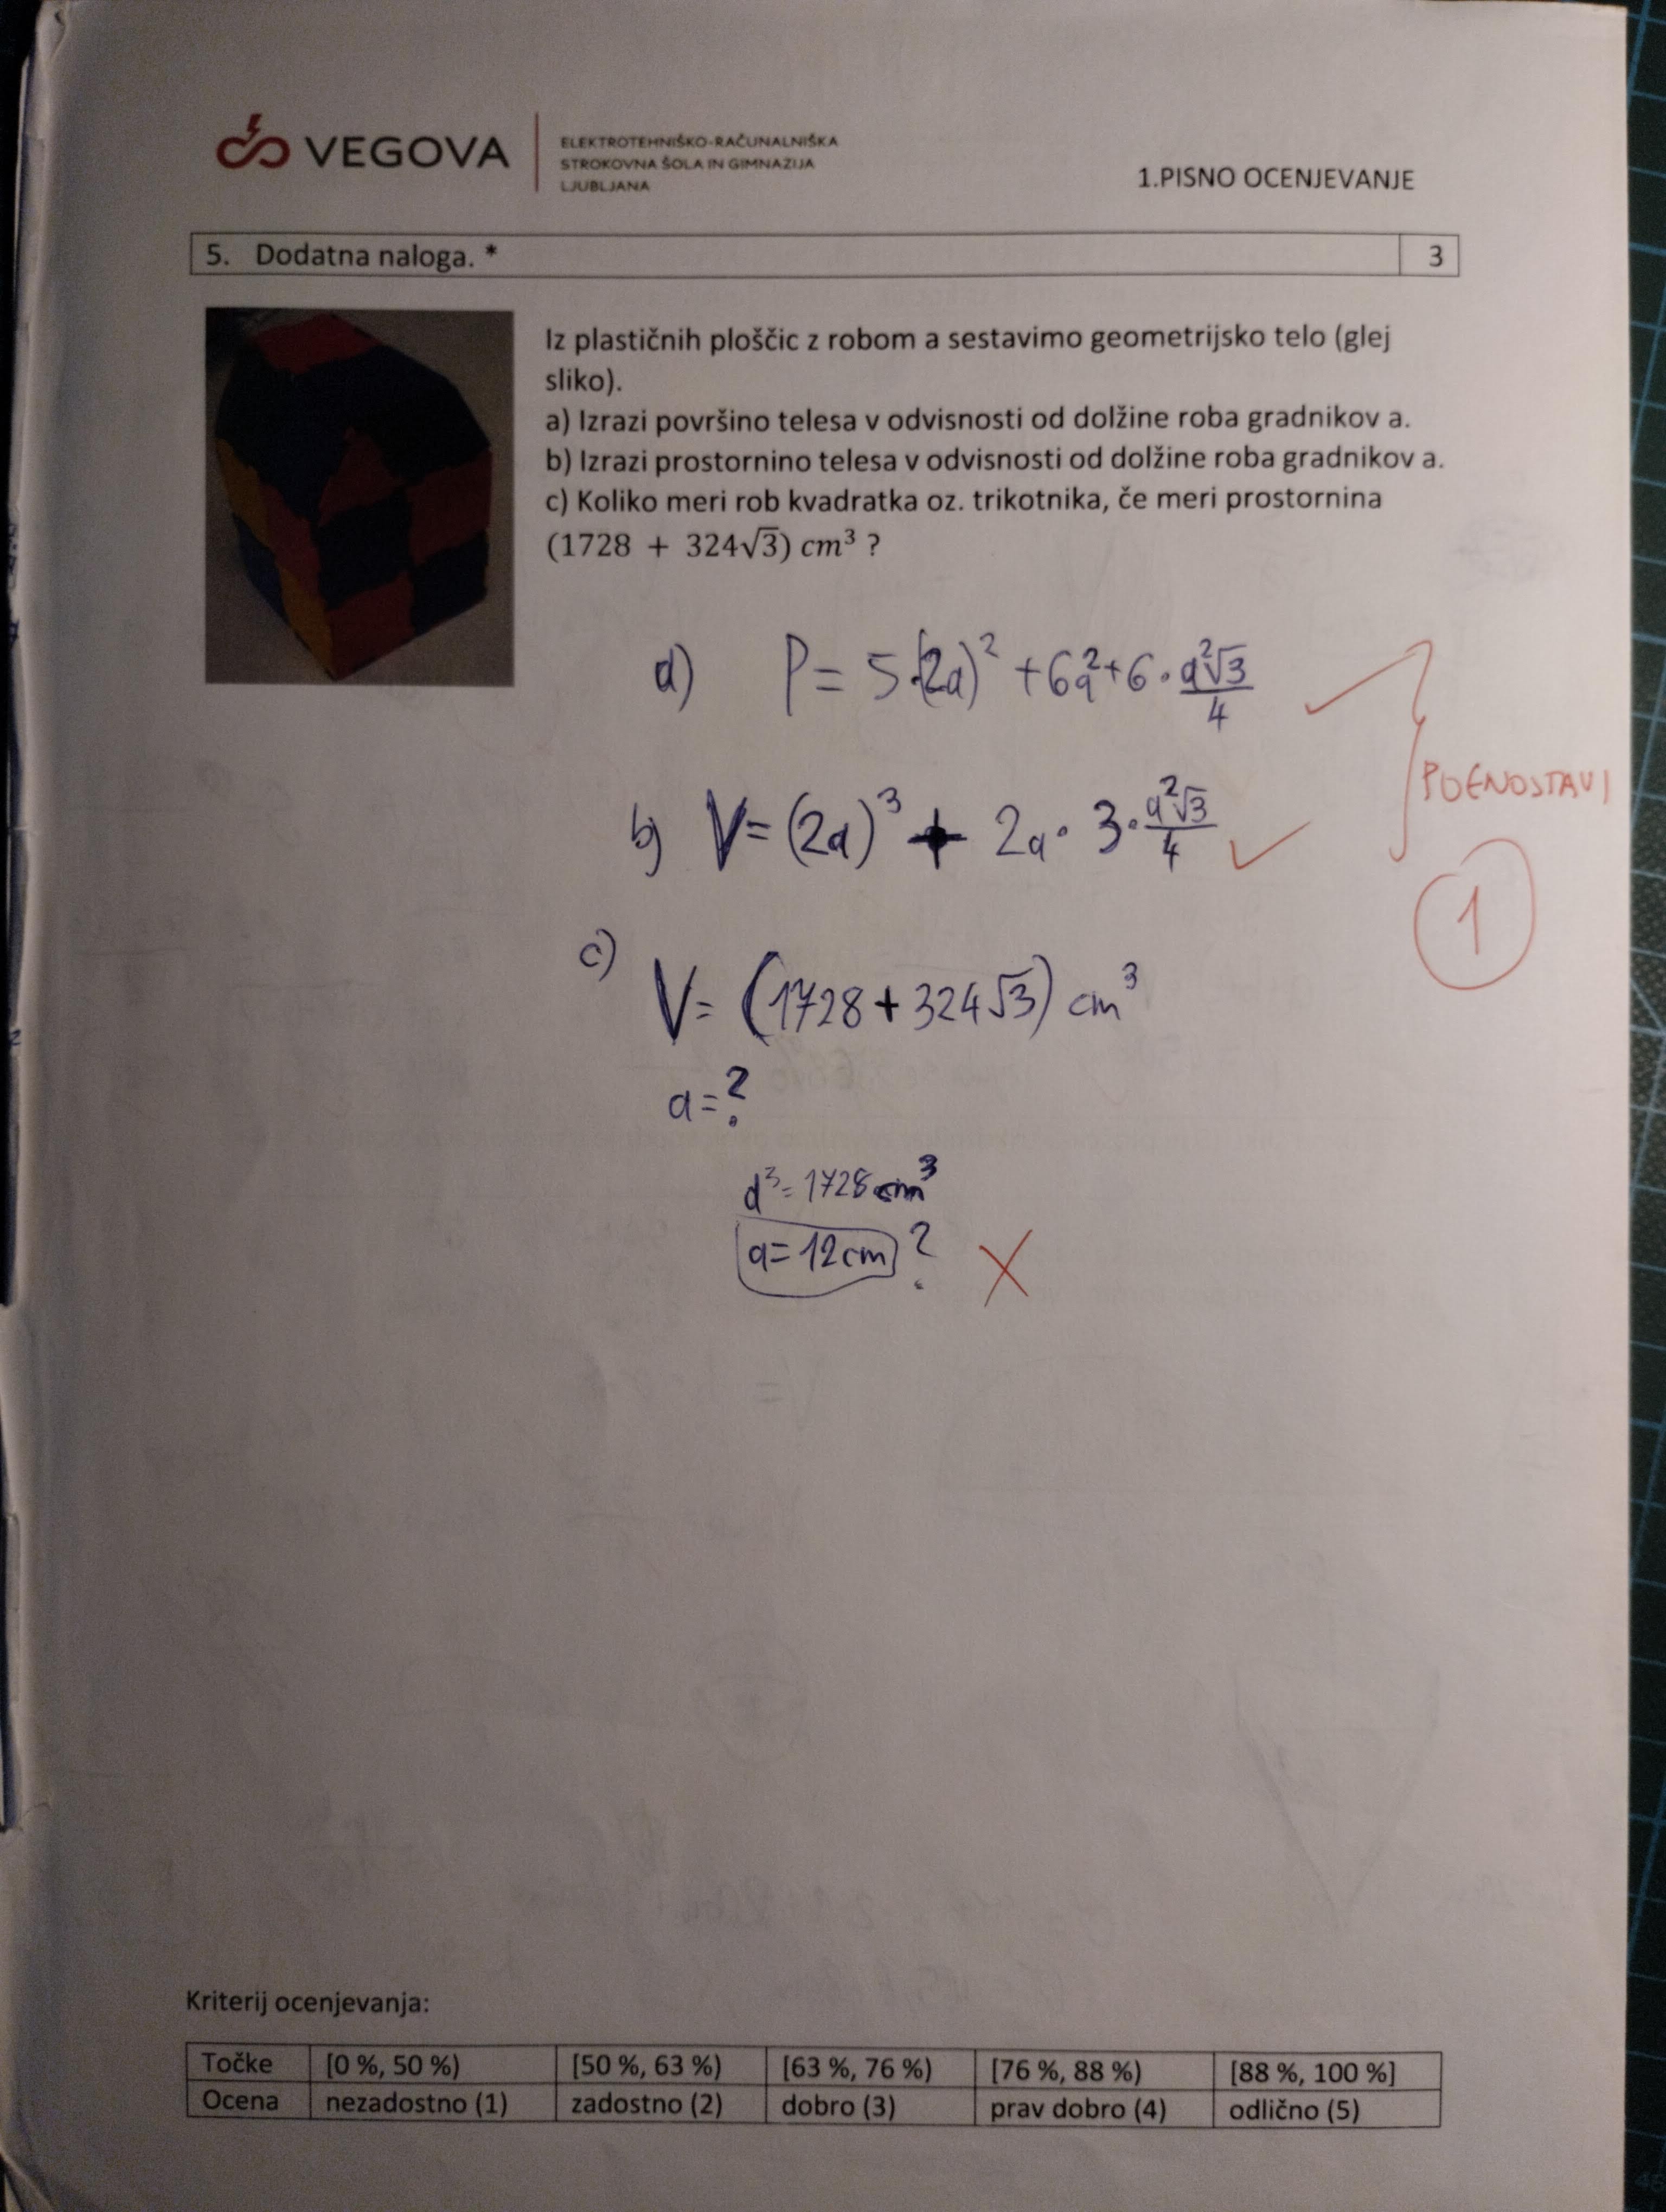 VEGOVA
ELEKTROTEHNIŠKO-RAČUNALNIŠKA
STROKOVNA ŠOLA IN GIMNAZIJA
LJUBLJANA
1.PISNO OCENJEVANJE
5. Dodatna naloga. * 3
Iz plastičnih ploščic z robom a sestavimo geometrijsko telo (glej
sliko).
a) Izrazi površino telesa v odvisnosti od dolžine roba gradnikov a.
b) Izrazi prostornino telesa v odvisnosti od dolžine roba gradnikov a.
c) Koliko meri rob kvadratka oz. trikotnika, če meri prostornina
(1728 + 324√3) cm³ ?
a) P = 5·(2a)² + 6a² + 6 · a²√3/4
POENOSTAVI
b) V = (2a)³ + 2a · 3 · a²√3/4
1
c)
V = (1728 + 324√3) cm³
a = ?
a³ = 1728 cm³
a = 12 cm ?
Kriterij ocenjevanja:
Točke [0 %, 50 %) [50 %, 63 %) [63 %, 76 %) [76 %, 88 %) [88 %, 100 %]
Ocena nezadostno (1) zadostno (2) dobro (3) prav dobro (4) odlično (5)